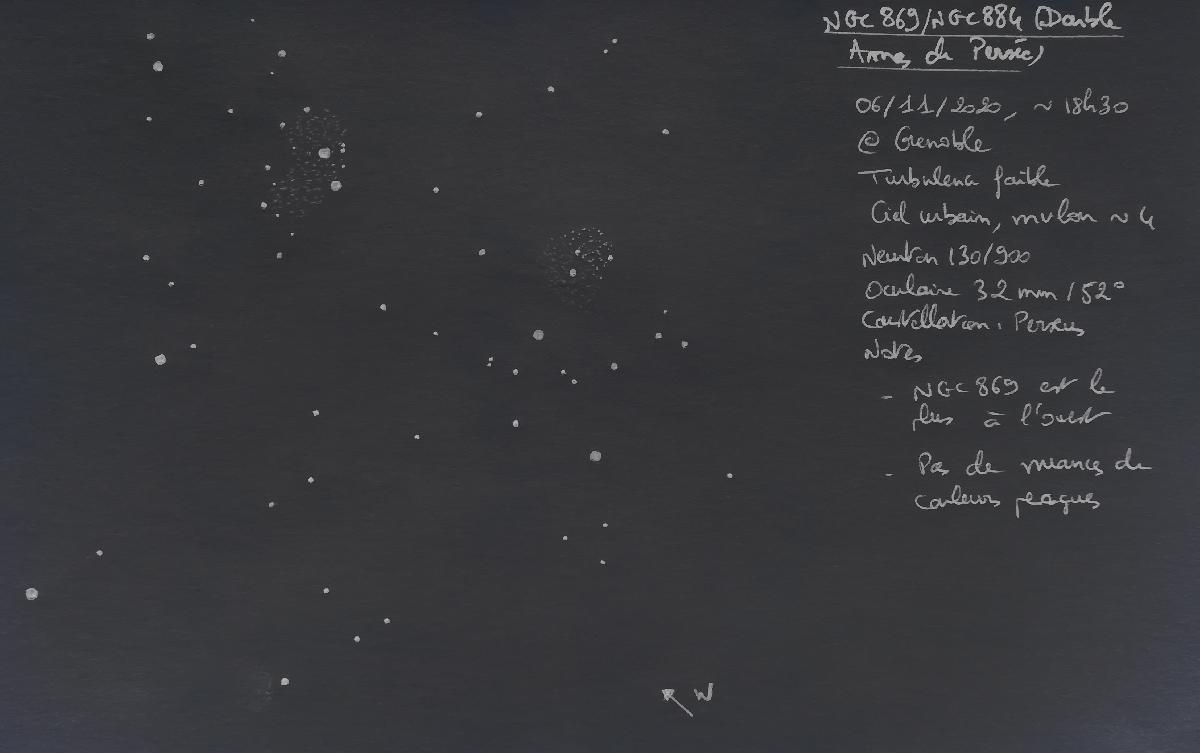 NGC 869/NGC 884 (Double
Amas de Persée)
06/11/2020, ~ 18h30
@ Grenoble
Turbulence faible
Ciel urbain, mvlon ~ 4
Newton 130/900
Oculaire 32 mm / 52°
Constellation : Perseus
Notes
- NGC 869 est le
plus à l'ouest
- Pas de nuances de
couleurs perçues
W